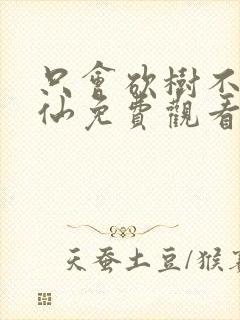 只會欲樹不
仙免費觀看
天蚕土豆/猴